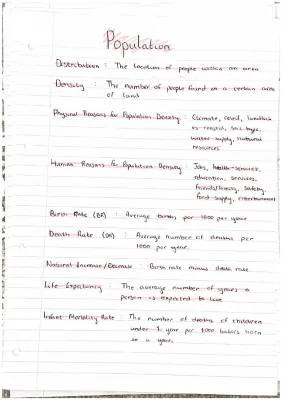 Population
Distribution : The location of people within an area
Density : The number of people found on a certain area
of land
Physical Reasons for Population Density : Climate, relief, landlock
soil type,
water supply, natural
resources
Human Reasons for Population Density : Jobs, health-services,
education, services,
friends/family, safety,
food supply, entertainment
Birth Rate (BR) : Average births per 1000 per year
Death Rate (DR) : Average number of deaths per
1000 per year.
Natural Increase/Decrease : Birth rate minus death rate
Life Expectancy : The average number of years a
person is expected to live
Infant Mortality Rate : The number of deaths of children
under 1 year per 1000 babies born
in a year.